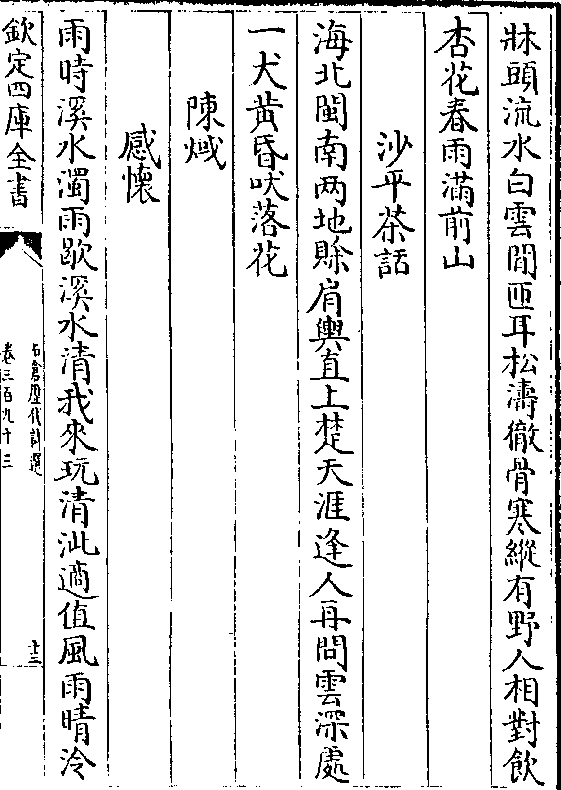 牀頭流水白雲間匝耳松濤徹骨寒縱有野人相對飲
杏花春雨滿前山
沙平茶話
海北閩南两地賒肩輿直上楚天涯逢人再問雲深處
一犬黄昏吠落花
陳熾
感懷
雨時溪水濁雨歇溪水清我來玩清泚適值風雨晴泠
欽定四庫全書
石倉歷代詩選
卷三百九十三
十三